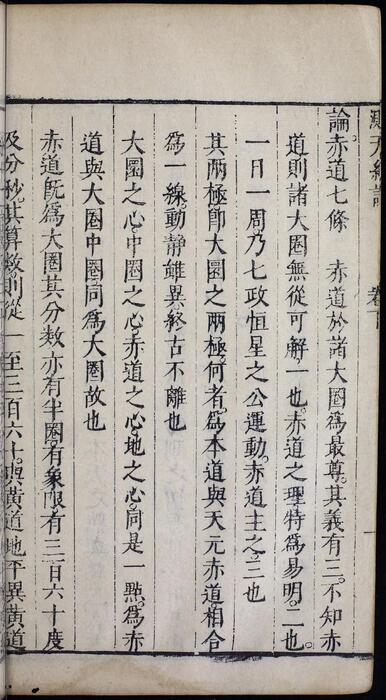 測天約說 卷下
論赤道七條 赤道於諸大圈爲最尊。其義有三。不知赤
道則諸大圈無從可解。一也。赤道之理特爲易明。二也。
一日一周。乃七政恒星之公運動。赤道主之。三也
其兩極卽大圜之兩極。何者。爲本道與天元赤道相合
爲一線。動靜雖異。終古不離也
大圜之心。中圈之心。赤道之心。地之心。同是一點。爲赤
道與大圈中圈同爲大圈故也
赤道旣爲大圈其分數亦有半圈。有象限有三百六十度
及分秒。其算數則從一至三百六十。與黃道地平異黃道